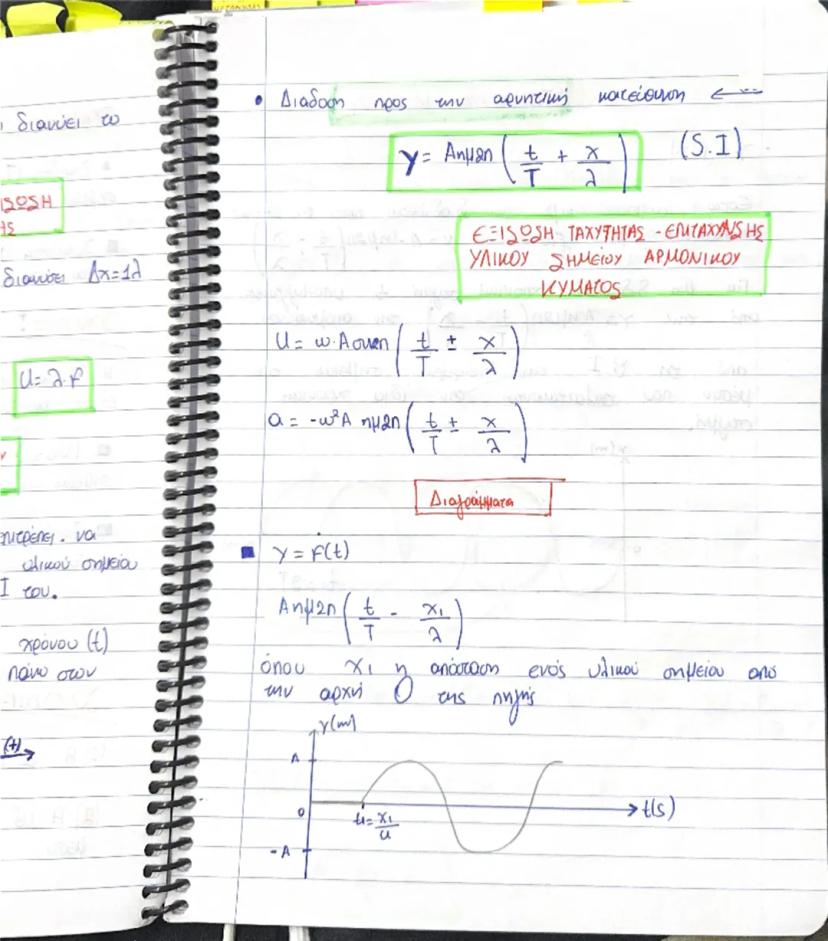 ι διανύει το
ΙΣΩΣΗ
ΗΣ
διανύσει Δx=1λ
U= λ.f
επιτρέπει. να
υλικού σημείου
Ι του.
χρόνου (t)
πάνω στον
(+)
• Διάδοση προς την αρνητική κατεύθυνση ←
y= Aημ2π (t/T + x/λ) (S.I)
ΕΞΙΣΩΣΗ ΤΑΧΥΤΗΤΑΣ - ΕΠΙΤΑΧΥΝΣΗΣ
ΥΛΙΚΟΥ ΣΗΜΕΙΟΥ ΑΡΜΟΝΙΚΟΥ
ΚΥΜΑΤΟΣ
U= ω.Aσυνπ (t/T ± x/λ)
a= -ω²A ημ2π (t/T ± x/λ)
Διαγράμματα
y = f(t)
Aημ2π (t/T - x₁/λ)
όπου x₁ η απόσταση ενός υλικού σημείου από
την αρχή Ο της πηγής
y(m)
A
0
t₁= x₁/u
t(s)
-A